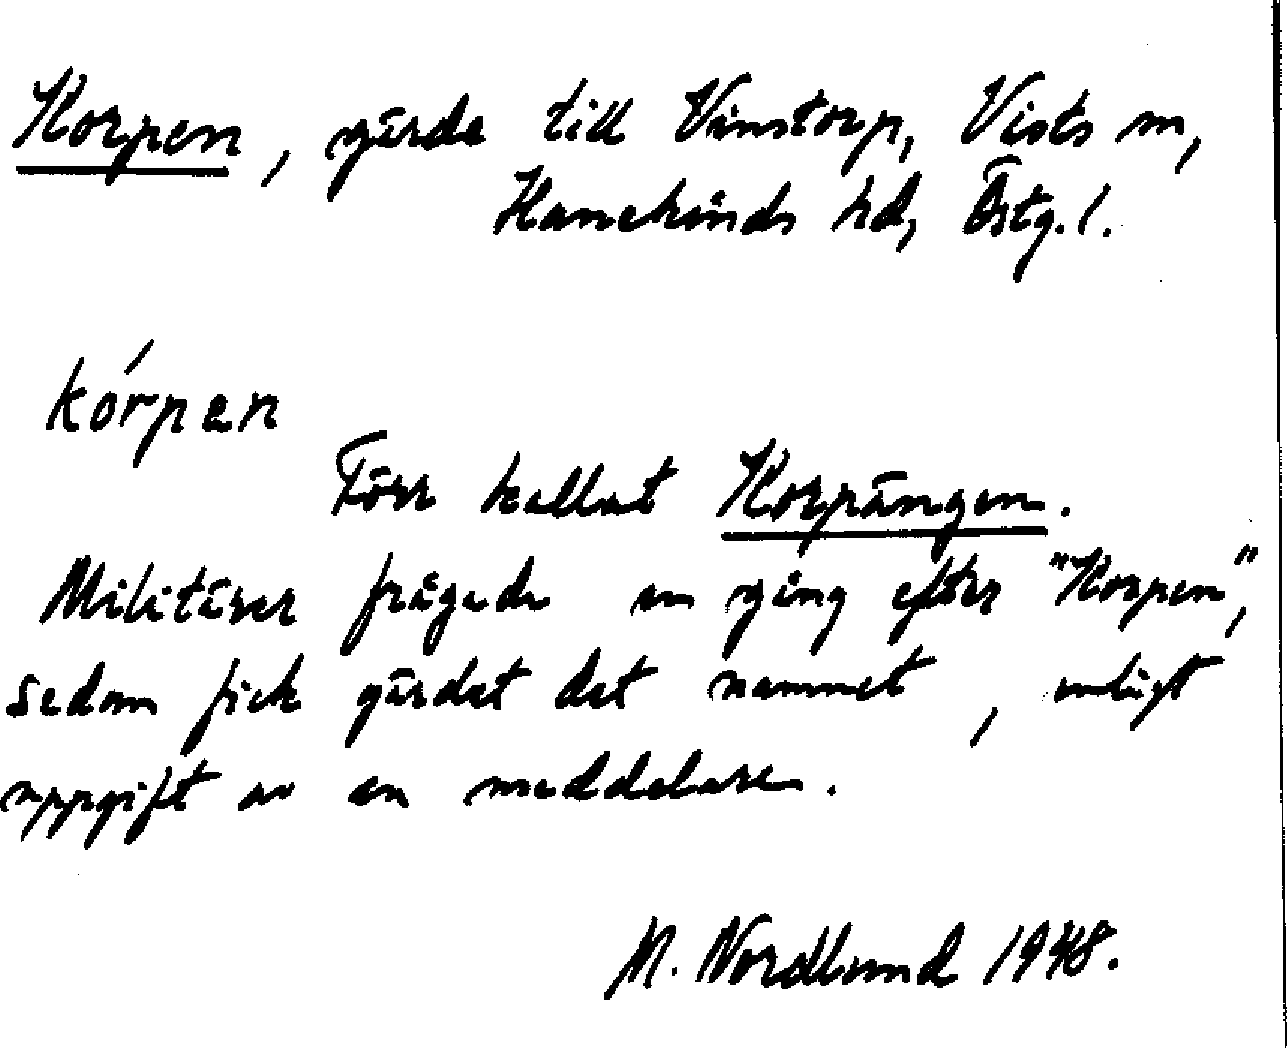 Korpen, gärde till Vinstorp, Vists sn,
Hanekinds hd, Östg. l.
kórpen
Förr kallat Korpängen.
Militärer frågade en gång efter "Korpen",
sedan fick gärdet det namnet, enligt
uppgift av en meddelare.
M. Nordlund 1948.